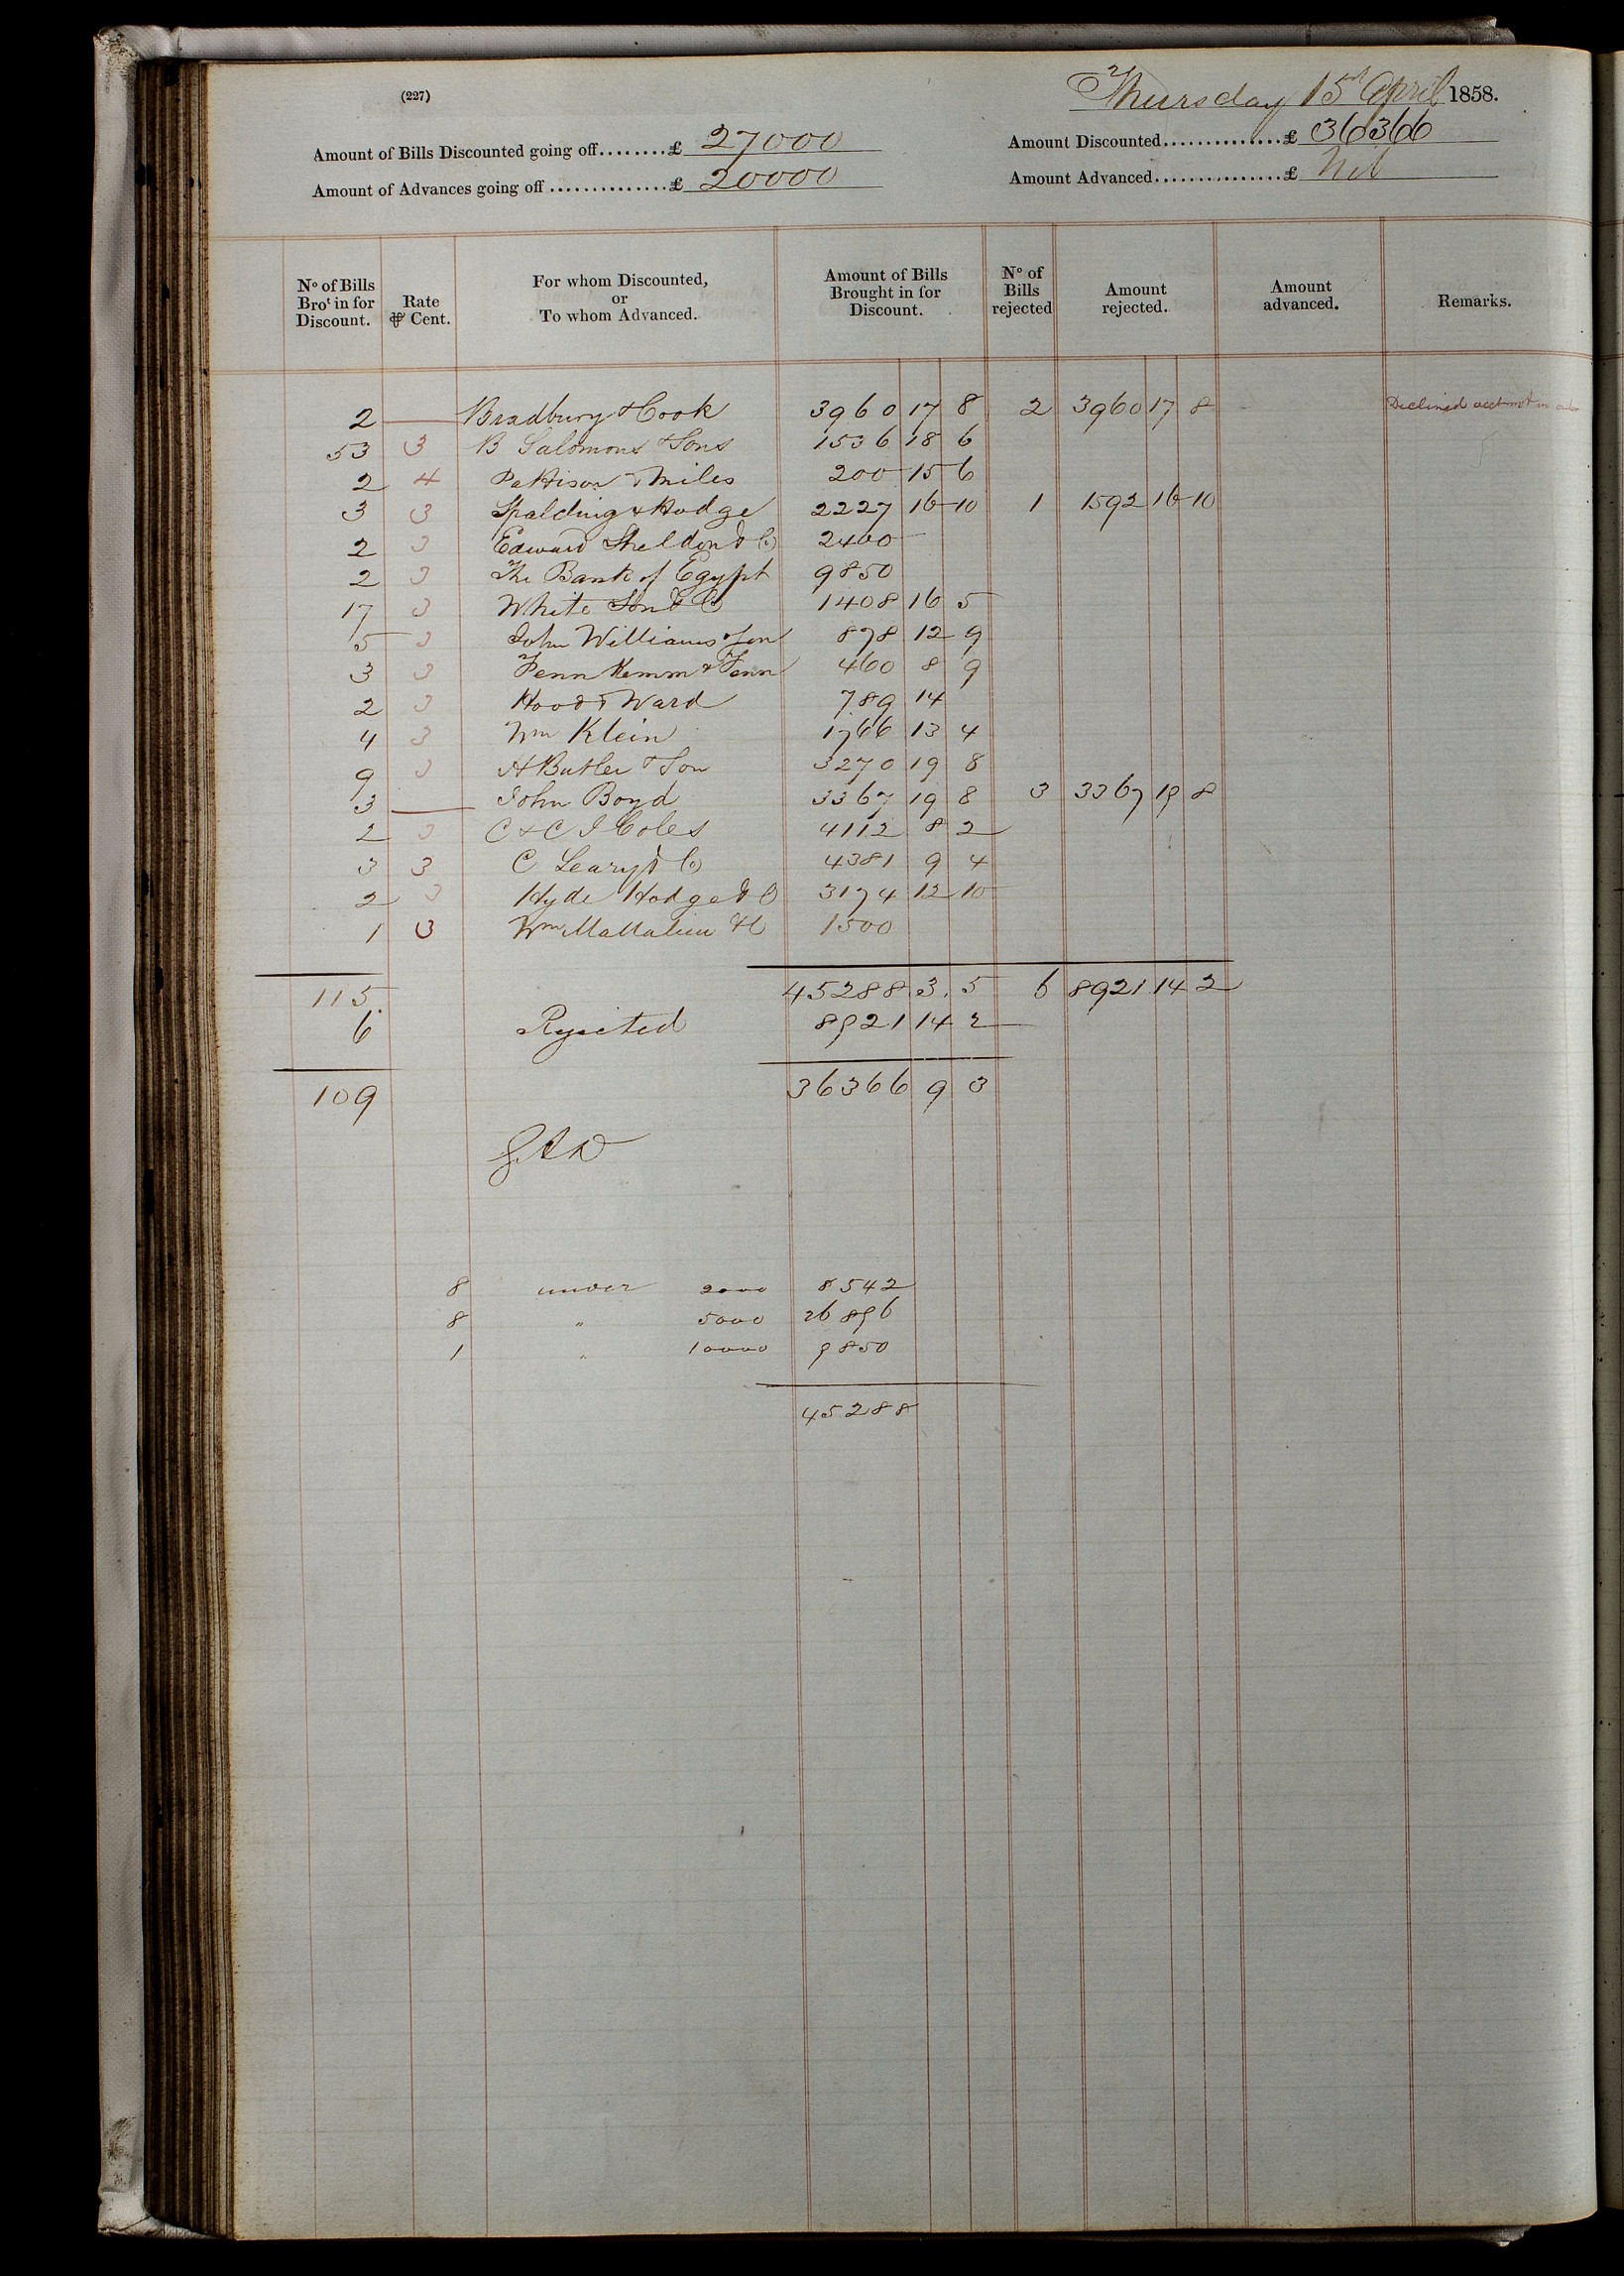 (227)
Thursday 15th April 1858.
Amount of Bills Discounted going off........£ 27000
Amount Discounted..............£ 36366
Amount of Advances going off ..............£ 20000
Amount Advanced...............£ Nil
No of Bills Brot in for Discount. Rate ⅌ Cent. For whom Discounted, or To whom Advanced. Amount of Bills Brought in for Discount. No of Bills rejected Amount rejected. Amount advanced. Remarks.
2 — Bradbury & Cook 3960 17 8 2 3960 17 8 Declined acct not in
53 3 B Salomons & Sons 1536 18 6
2 4 Pattison & Miles 200 15 6
3 3 Spalding & Hodge 2227 16 10 1 1592 16 10
2 3 Edward Sheldon & Co 2400
2 3 The Bank of Egypt 9850
17 3 White Son & Co 1408 16 5
5 3 John Williams & Son 878 12 9
3 3 Fenn Kemm & Fenn 460 8 9
2 3 Hood & Ward 789 14
4 3 Wm Klein 1766 13 4
9 3 H Butler & Son 3270 19 8
3 — John Boyd 3367 19 8 3 3367 19 8
2 3 C & C J Coles 4112 8 2
3 3 C Leary & Co 4381 9 4
2 3 Hyde Hodge & Co 3174 12 10
1 3 Wm Mallalieu & Co 1500
115 45288 3 5 6 8921 14 2
6 Rejected 8921 14 2
109 36366 9 3
8 under 2000 8542
8 " 5000 26896
1 " 10000 9850
45288